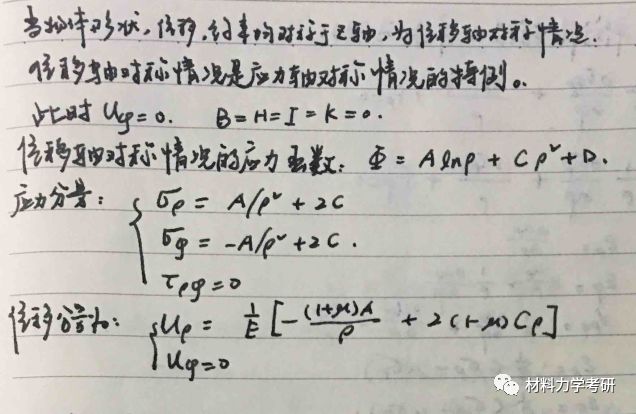 当物体形状,位移,约束均对称于Z轴,为位移轴对称情况.
位移轴对称情况是应力轴对称情况的特例。
此时 Uφ=0. B=H=I=K=0.
位移轴对称情况的应力函数: Φ = A lnρ + Cρ²+D.
应力分量: { σρ = A/ρ² + 2C
σφ = -A/ρ² + 2C.
τρφ=0
位移分量为: { Uρ = 1/E [-(1+μ)A/ρ + 2(1-μ)Cρ]
Uφ=0
材料力学考研